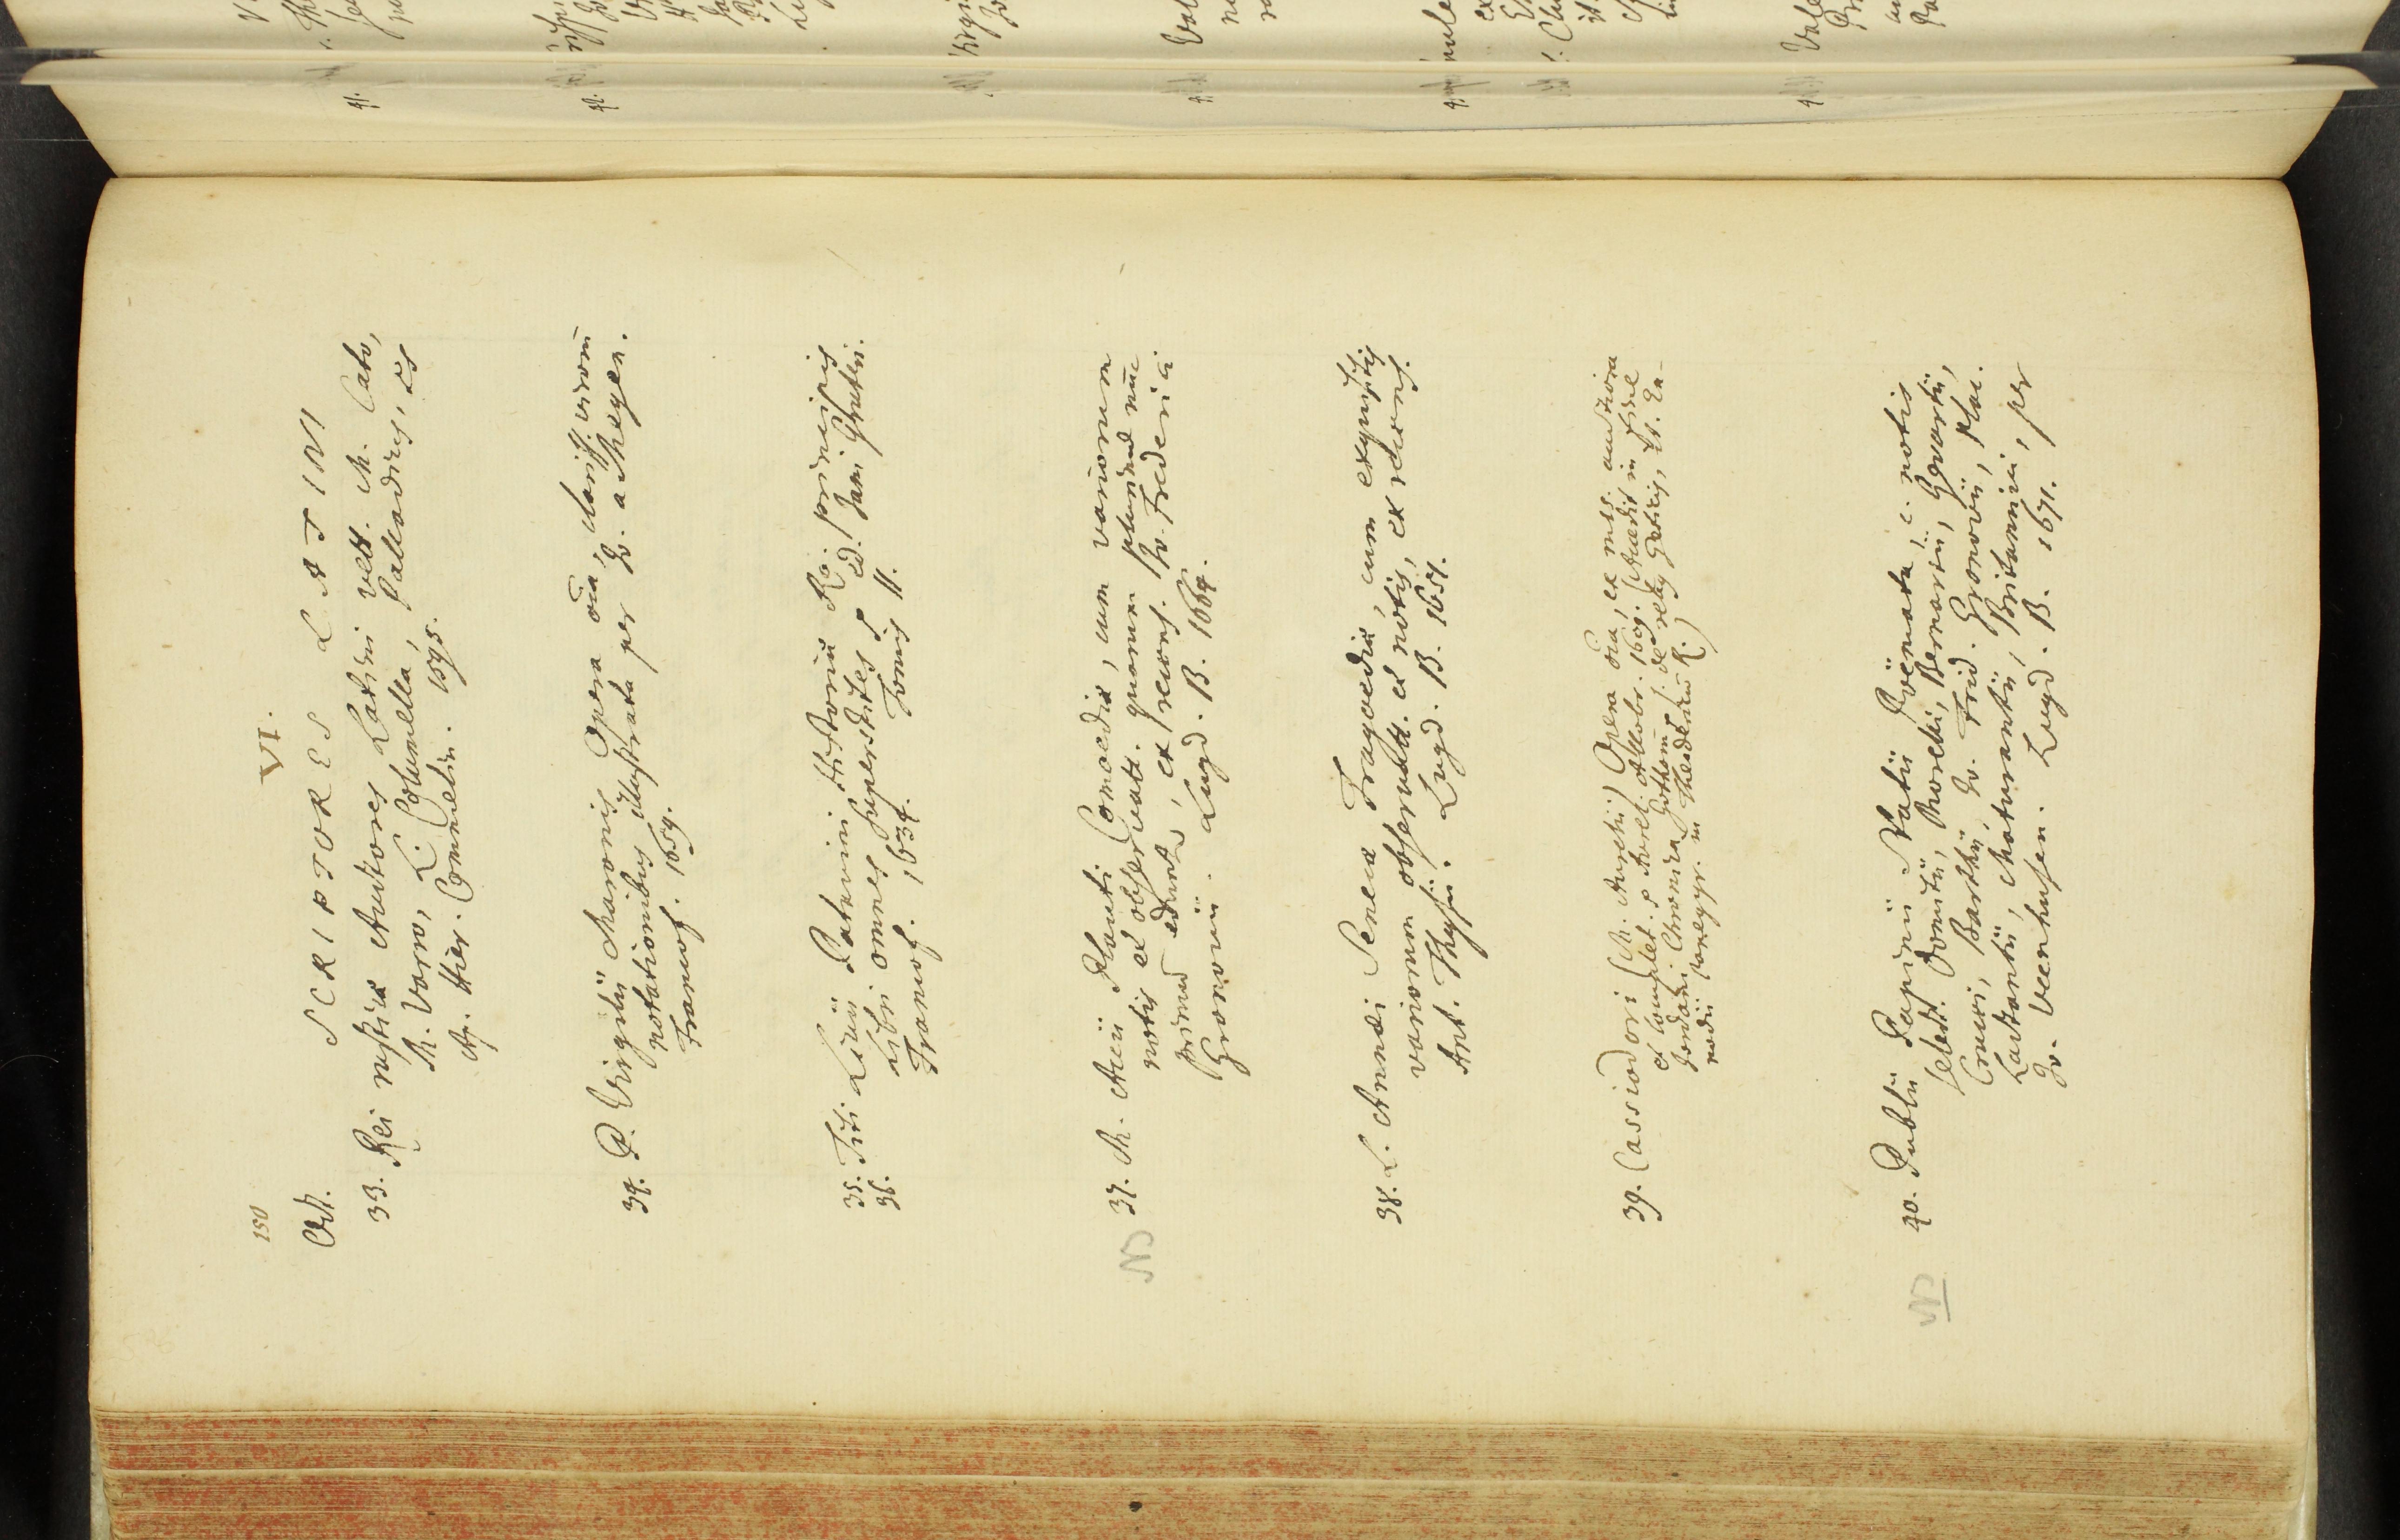 150
VI.
Oct.
SCRIPTORES LATINI
33. Rei rusticæ Auctores Latini vett. M. Cato,
M. Varro, L. Columella, Palladius, ex
Hier. Comelin. 1595.
34. P. Virgilii Maronis Opera oīa, clariss. virorū
notationibus illustrata per Jo. a Meyen.
Francof. 1659.
35. Titi Livii Patavini Historiæ Ro. principis
36. Libri omnes superstites, ed. Jani Gruteri.
Francof. 1634. Tomis II.
NB 37. M. Accii Plauti Comoediæ, cum variorum
notis et observatt. quarum plurimæ nūc
primū edunt, ex recens. Jo. Frederici
Gronovii. Lugd. B. 1664.
38. L. Annæi Senecæ Tragoediæ, cum exquisitis
variorum observatt. et notis, ex recens.
Ant. Thysii. Lugd. B. 1651.
39. Cassiodori (M. Aurelii) Opera oīa, ex mss. auctiora
et complet. Aurel. Allobr. 1609. (Accedūt in fine
Jordani Chronica Gothorū de rebus Geticis, it. En-
nodii panegyr. in Theodericū R.)
NB 40. Publii Papinii Statii Poëmata, c. notis
select. Domitii, Morelli, Bernartii, Gevartii,
Crucei, Barthii, Jo. Frid. Gronovii, Plac.
Lactantii, Maturantii, Britannici, per
Jo. Veenhusen. Lugd. B. 1671.